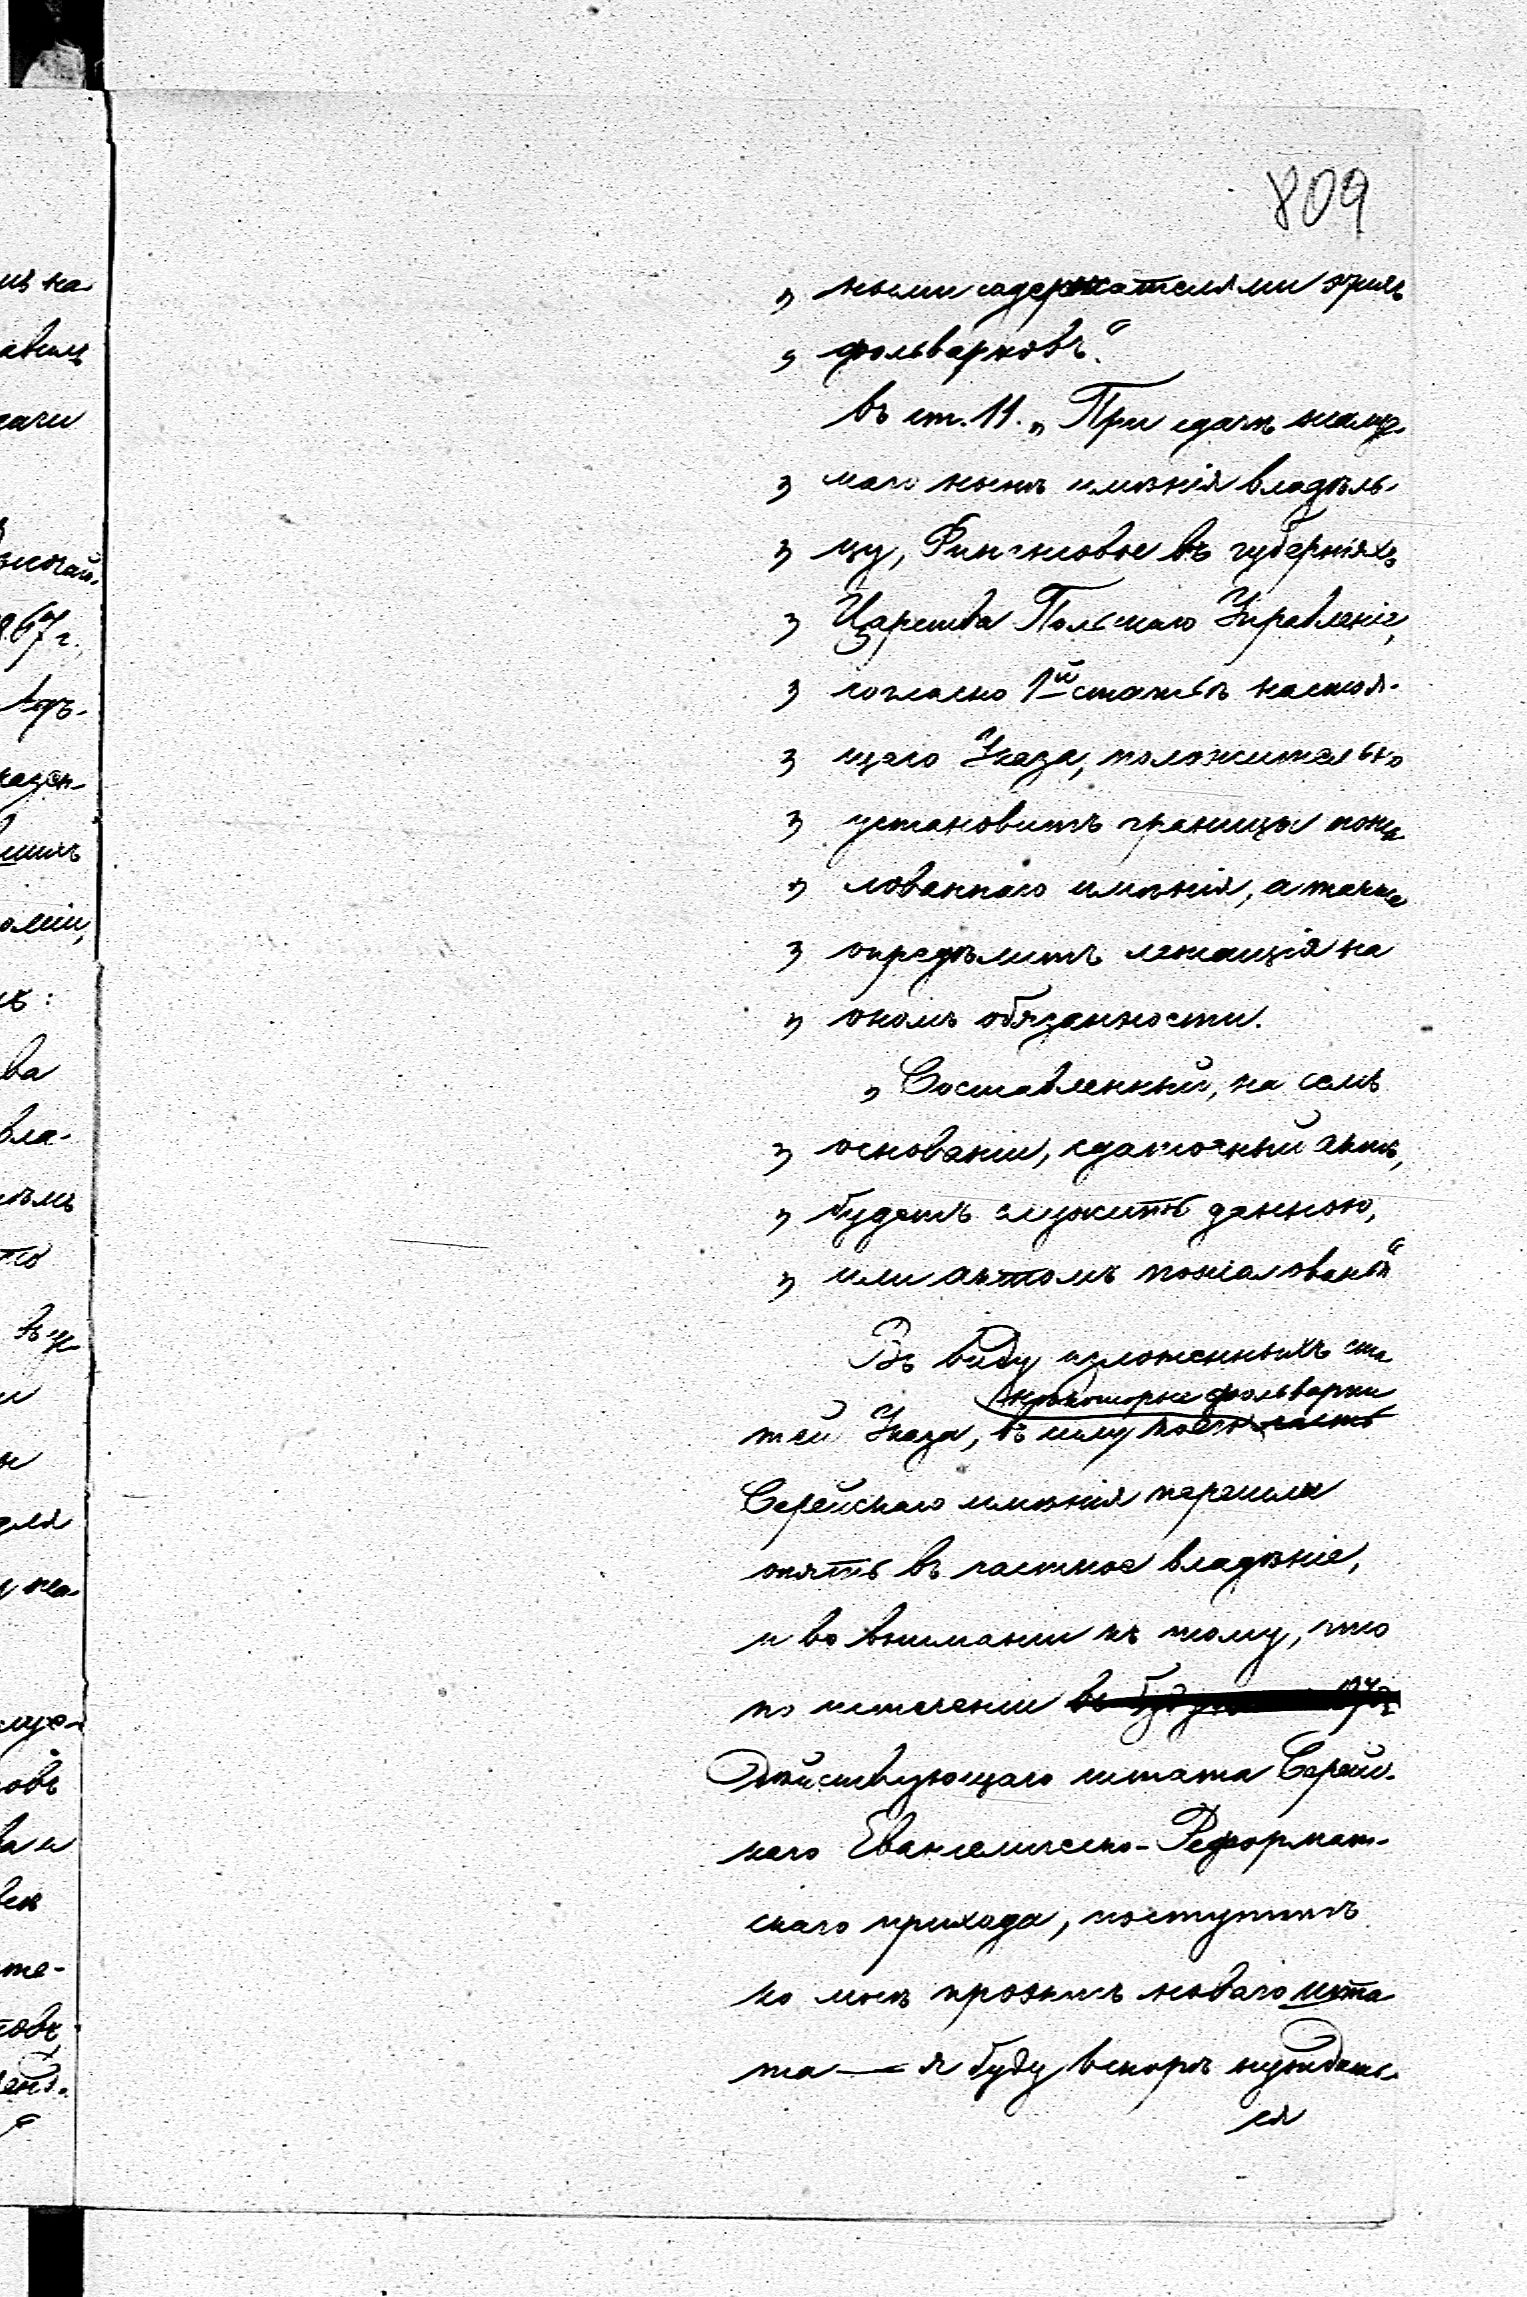 809
„ ными содержателями этихъ
„ фольварковъ.“
въ ст. 11. „При сдачѣ жалуе-
„ маго нынѣ имѣнія владѣль-
„ цу, Финансовое въ губерніяхъ
„ Царства Польскаго Управленіе,
„ согласно 1й статьѣ настоя-
„ щаго Указа, положительно
„ установитъ границы пожа
„ лованнаго имѣнія, а также
„ опредѣлитъ лежащія на
„ ономъ обязанности.
„ Составленный, на семъ
„ основаніи, сдаточный актъ,
„ будетъ служить данною,
„ или актомъ пожалованія“
Въ виду изложенныхъ ста
нѣкоторые фольварки
тей Указа, въ силу часть
Серейскаго имѣнія перешла
опять въ частное владѣніе,
и во вниманіи къ тому, что
по истеченіи
Дѣйствующаго штата Серей-
скаго Евангелическо-Реформат-
скаго прихода, поступитъ
ко мнѣ проэктъ новаго шта
та — я буду вскорѣ нуждать-
ся
мъ на-
дачи
867 г.
казен-
ва
вла-